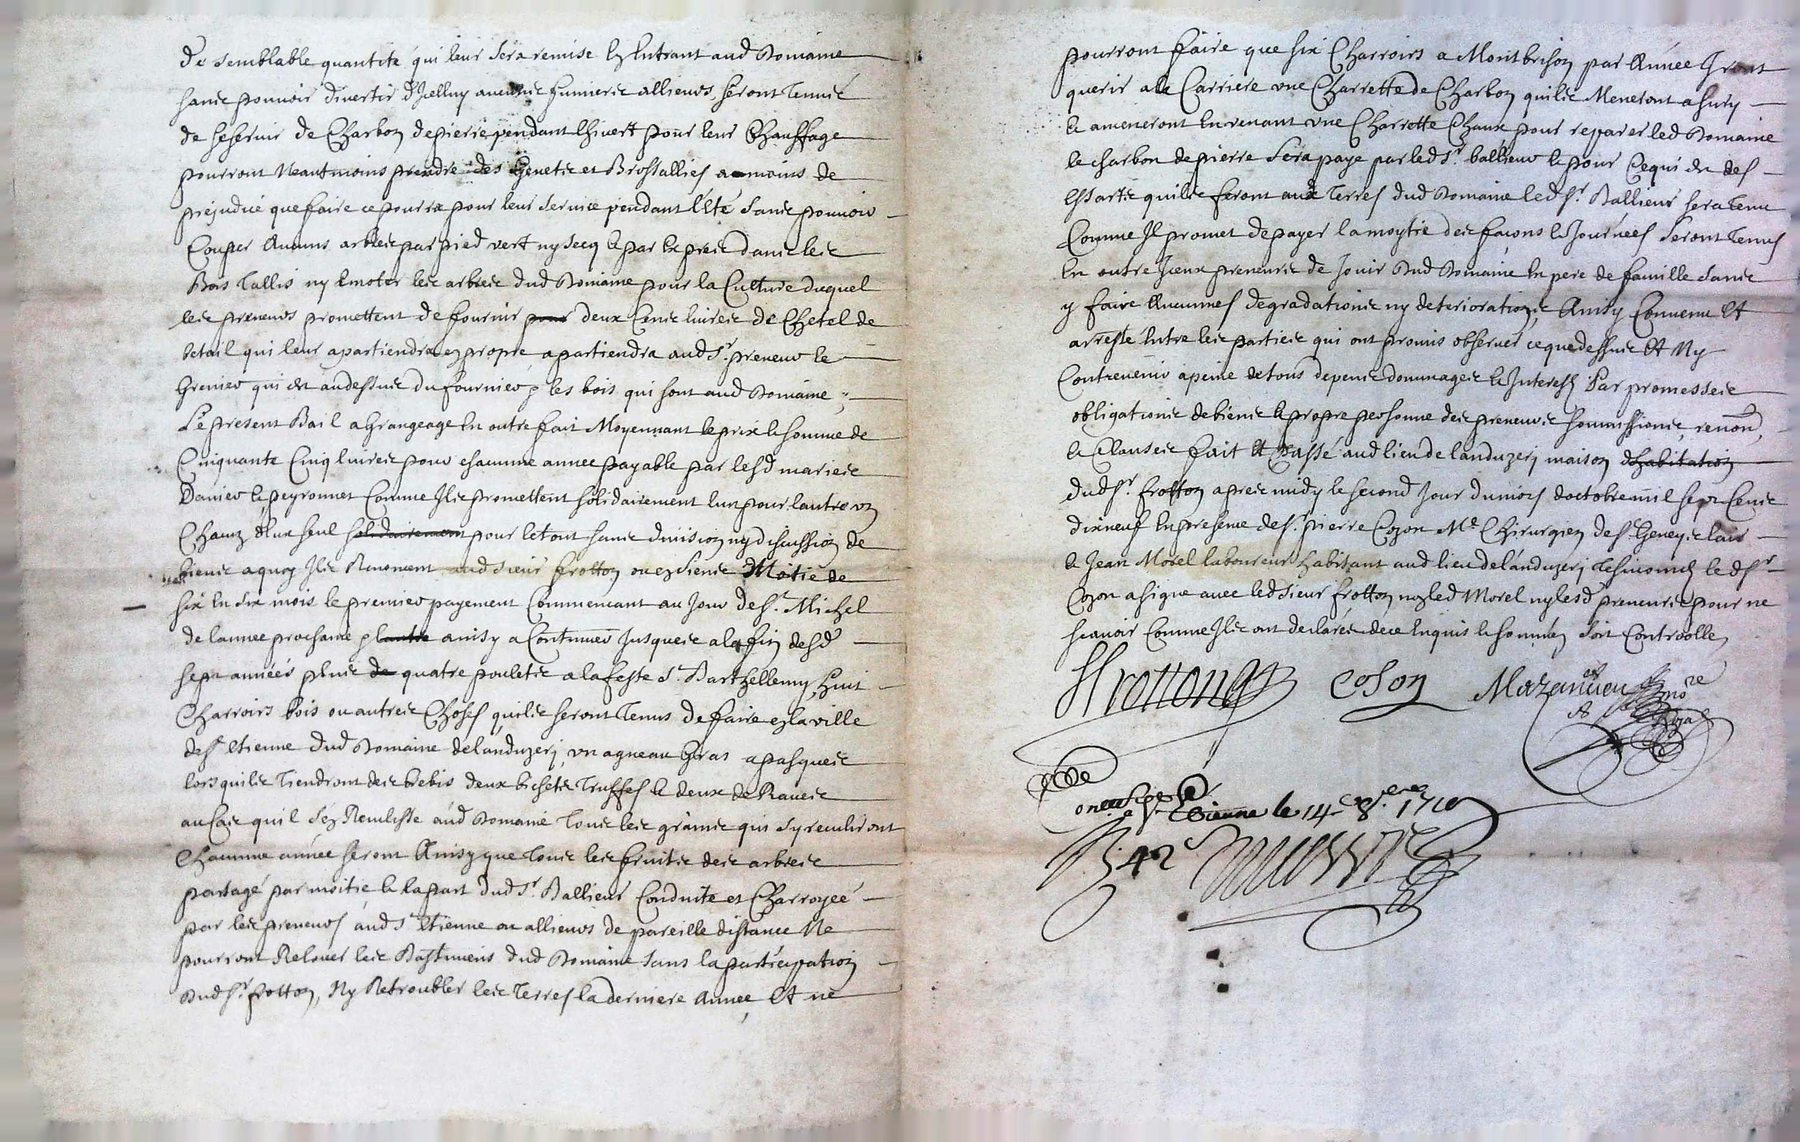 de semblable quantité qui leur sera remise En Entrant aud Domaine
sans pouvoir divertir d'Jelluy aucunes fumieres allieurs, seront Tenus
de se servir de Charbon de pierre pendant l'hivert pour leur Chauffage
pourront Neantmoins prendre des Genets et Brossallies a moins de
préjudice que faire ce pourra pour leur service pendant l'Eté sans pouvoir
Couper Aucuns arbres par pied vert ny secq & par Exprès dans les
Bois Tallis ny Emoter les arbres dud Domaine pour la Culture duquel
les preneurs promettent de fournir deux Cens livres de Chetel de
betail qui leur apartiendra en propre, apartiendra aud Sr. preneur le
Grenier qui est audessus du fournier & les bois qui sont aud Domaine ;
Le present Bail a Grangeage En outre fait Moyennant le prix & somme de
Cinquante Cinq livres pour chaunne année payable par lesd maries
Danier & peyronnet Comme Jls promettent solidairement l'un pour l'autre &
Chaun d'Eux seul pour le tout sans division ny discussion de
biens a quoy Jls Renoncent aud sieur frotton ou es siens Moitié de
six En six mois le premier payement Commencant au Jour de St. Michel
de l'année prochaine & ainsy a Continuer Jusques a la fin desd
sept années plus quatre poulets a la feste St. Barthellemy, huit
Charroirs bois ou autres Choses qu'ils seront Tenus de faire en la ville
de St Etienne dud Domaine de landuzery, un agneau Gras a pasques
lorsqu'ils Tiendront des brebis deux bichets Truffes & deux de Raves
au Cas qu'il s'en Remlisse aud Domaine Tous les grains qui s'y reculiront
Chaunne année seront Ainsy que Tous les fruits des arbres
partagé par moitié & la part dud Sr. Ballieur Conduite et Charroyée
par les preneurs aud St Etienne ou allieurs de pareille distance Ne
pourront Relouer les Bastimens dud Domaine sans la participation
Dud Sr. frotton, Ny Retroubler les Terres la derniere Année, Et ne
pourront faire que six Charroirs a Montbrison par Année Jront
querir a la Carriere une Charrette de Charbon qu'ils Meneront a sury
& ameneront En venant une Charrette Chaux pour reparer led Domaine
le charbon de pierre sera payé par led Sr. ballieur & pour Ce qui est des
Essarts qu'ils feront aux Terres dud Domaine led Sr. Ballieur sera Tenu
Comme Jl promet de payer la moytié des façons & Journées seront Tenus
En outre Jceux preneurs de Jouir Dud Domaine En pere de famille sans
y faire Aucunnes degradations ny deteriorations Ainsy Convenu Et
arresté Entre les parties qui ont promis observer ce que dessus Et Ny
Contrevenir a peine de tous depens dommages & Interests Par promesses
obligations de biens & propre personne des preneurs soumissions, renon.
& Clauses fait Et Passé aud lieu de landuzery maison
dud Sr. frotton apres midy le second Jour du mois d'octobre mil sept Cens
dix neuf En presence de Sr. pierre Cozon Me Chirurgien de St. Geneys lair
& Jean Morel laboureur habitant aud lieu de landuzery tesmoins led Sr
Cozon a signé avec led sieur frotton non led Morel ny lesd preneurs pour ne
scavoir Comme Jls ont declaré de ce Enquis & sommés soit Controollé,
Frottong Coson Mazandieu
St Etienne le 14e 8bre 1719
R. 42s